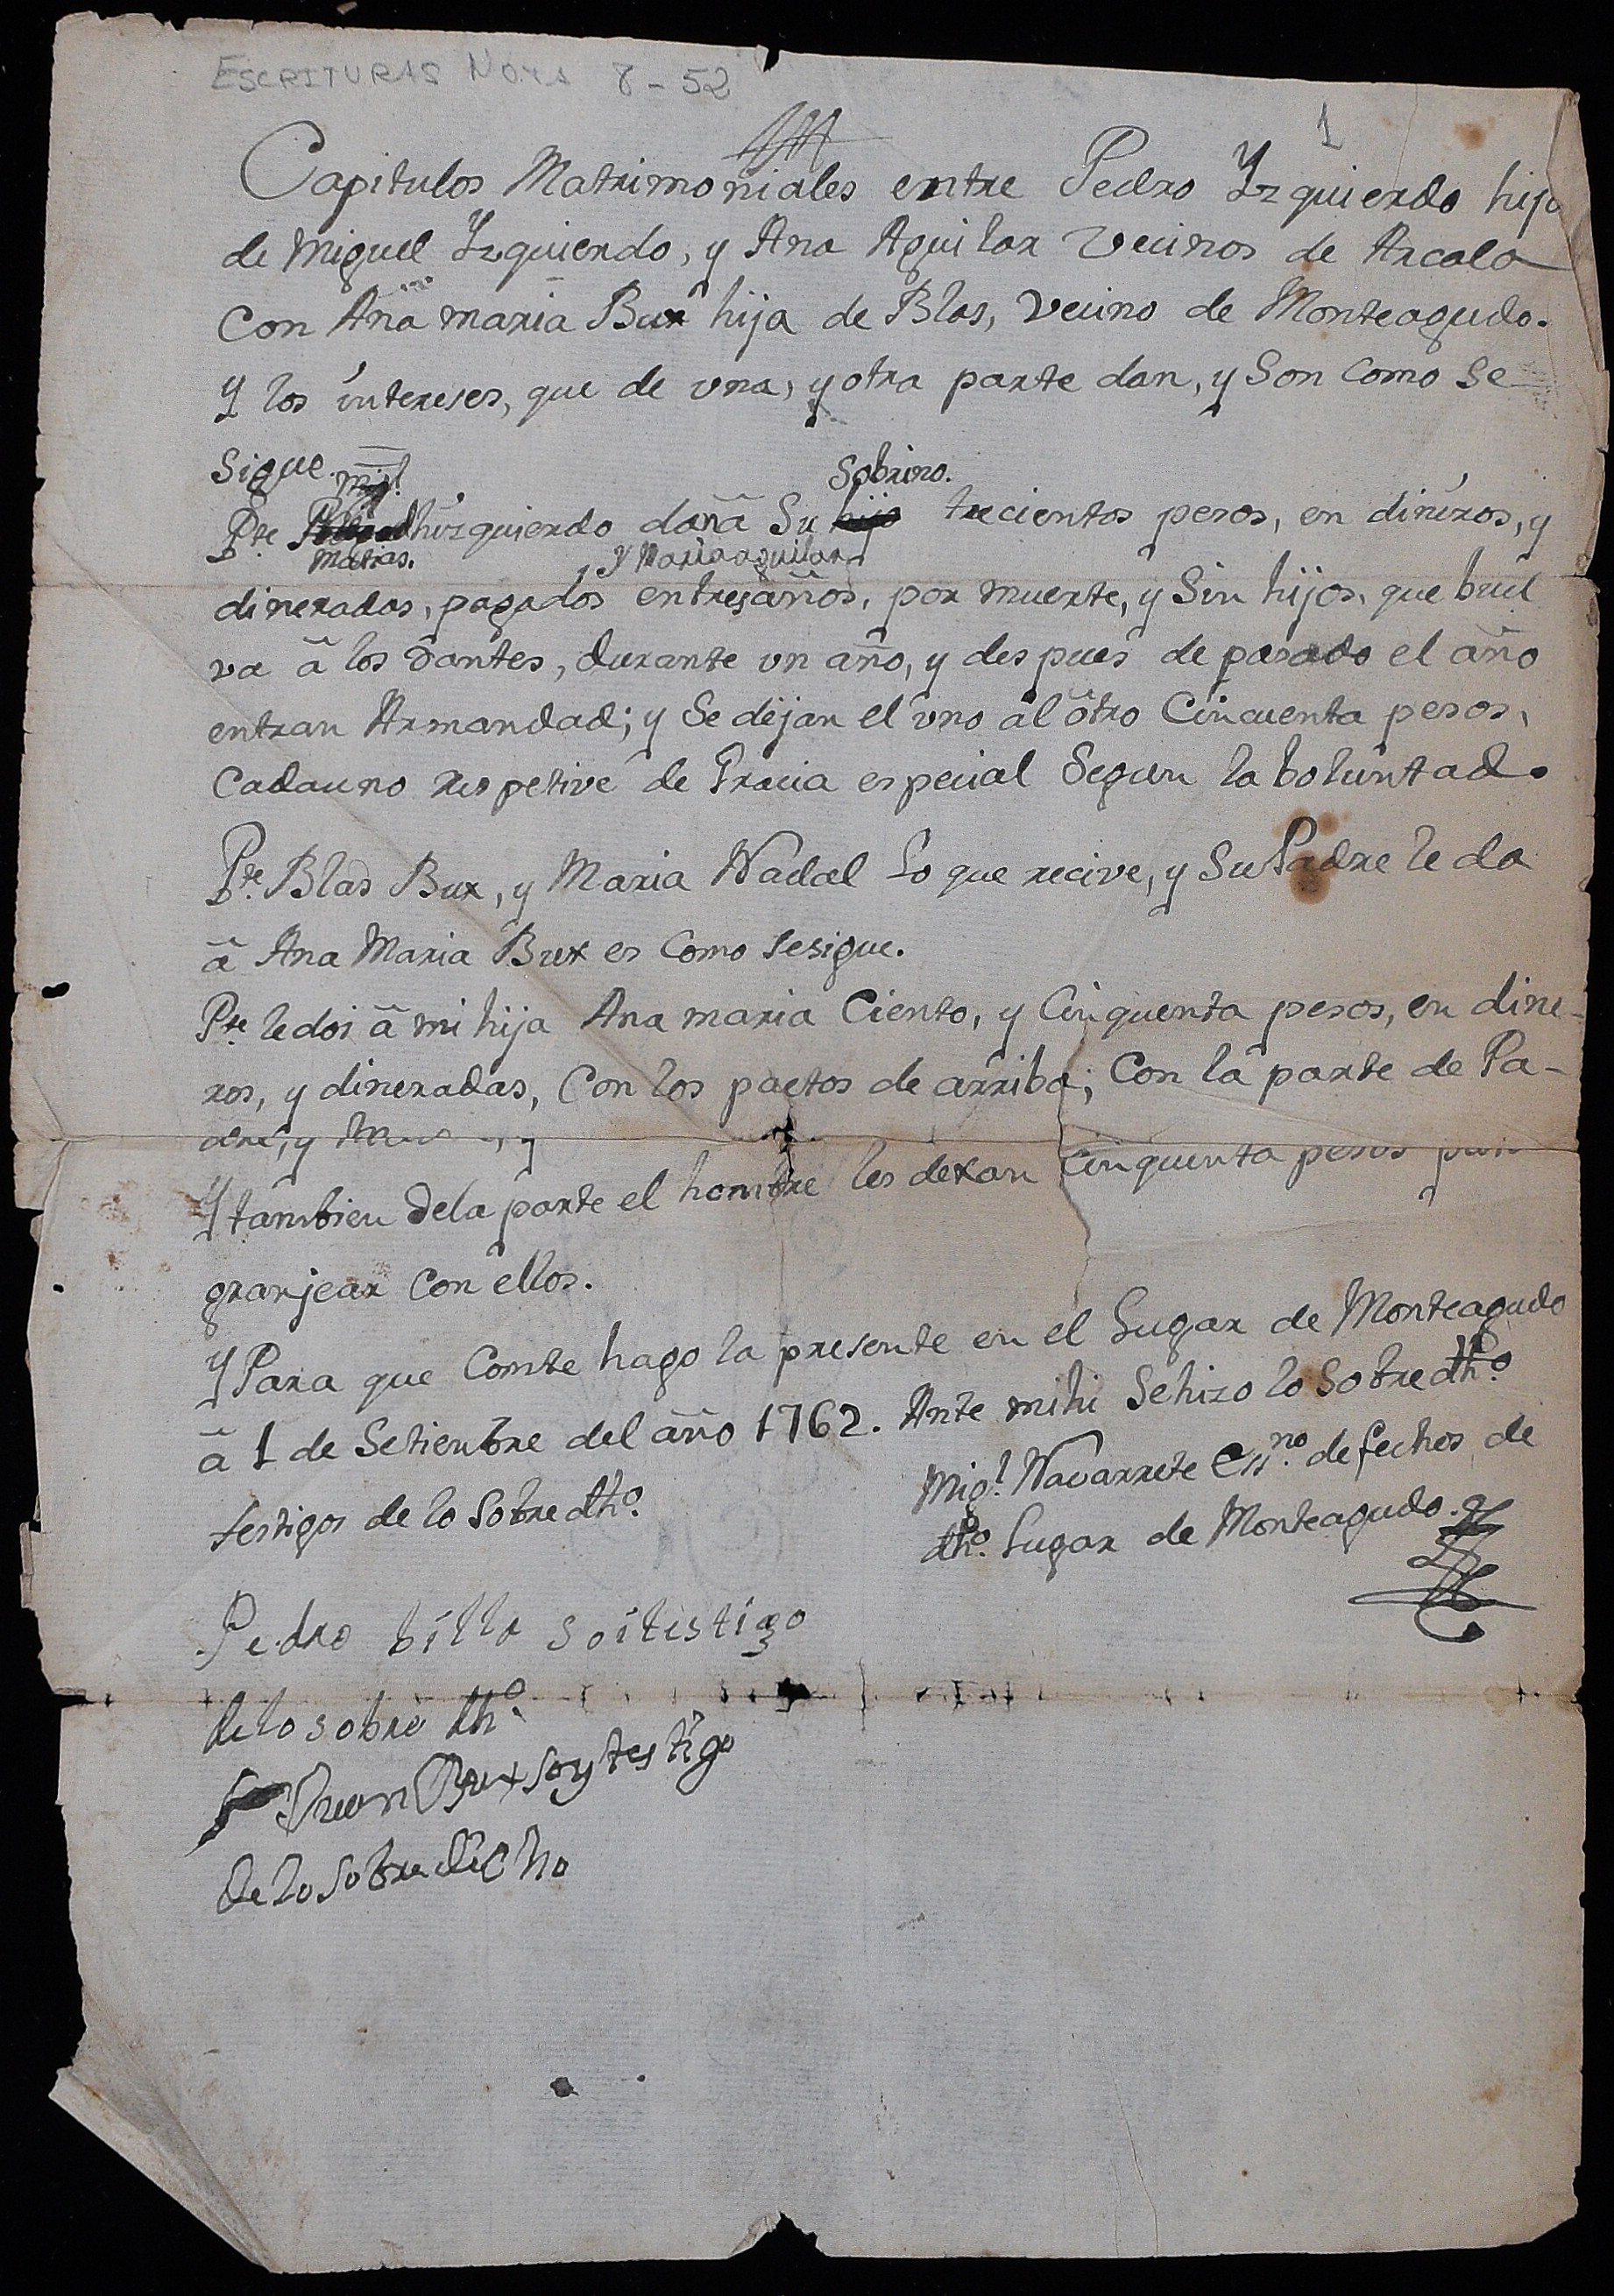 ESCRITURAS 8 - 52
1
Capitulos Matrimoniales entre Pedro Yzquierdo hijo
de Miguel Yzquierdo, y Ana Aguilar Vecinos de Arcala
Con Ana maria Bux hija de Blas, Vecino de Monteagudo.
Y los intereses, que de vna, y otra parte dan, y Son Como Se
Sigue. Sobrino.
Pte. Yzquierdo dona â Su hijo trecientos pesos, en dineros, y
Matias. y Maria aguilar
dineradas, pagados entresaños, por muerte, y Sin hijos, que buel
va â los Dantes, durante vn año, y despues de pasado el año
entran Armandad; y Se dejan el vno al otro Cincuenta pesos,
Cadauno respetive de Gracia especial Segun la boluntad.
Pte. Blas Bux, y Maria Nadal Lo que recive, y Su Padre le da
â Ana Maria Bux es Como Sesigue.
Pte. ledoi â mi hija Ana maria Ciento, y Cinquenta pesos, en dine-
ros, y dineradas, Con los pactos de arriba; Con la parte de Pa-
dre, y
Y tambien dela parte el hombre les dexan Cinquenta pesos
granjear Con ellos.
Y Para que Conste hago la presente en el Lugar de Monteagudo
â 1 de Setienbre del año 1762. Ante mihi Sehizo lo Sobredho.
testigos de lo Sobredho.
Migl. Navarrete Essno. de fechos de
dho. Lugar de Monteagudo.
Pedro billa soitestigo
delo sobre dho.
Juan Bux soy testigo
de lo Sobredicho